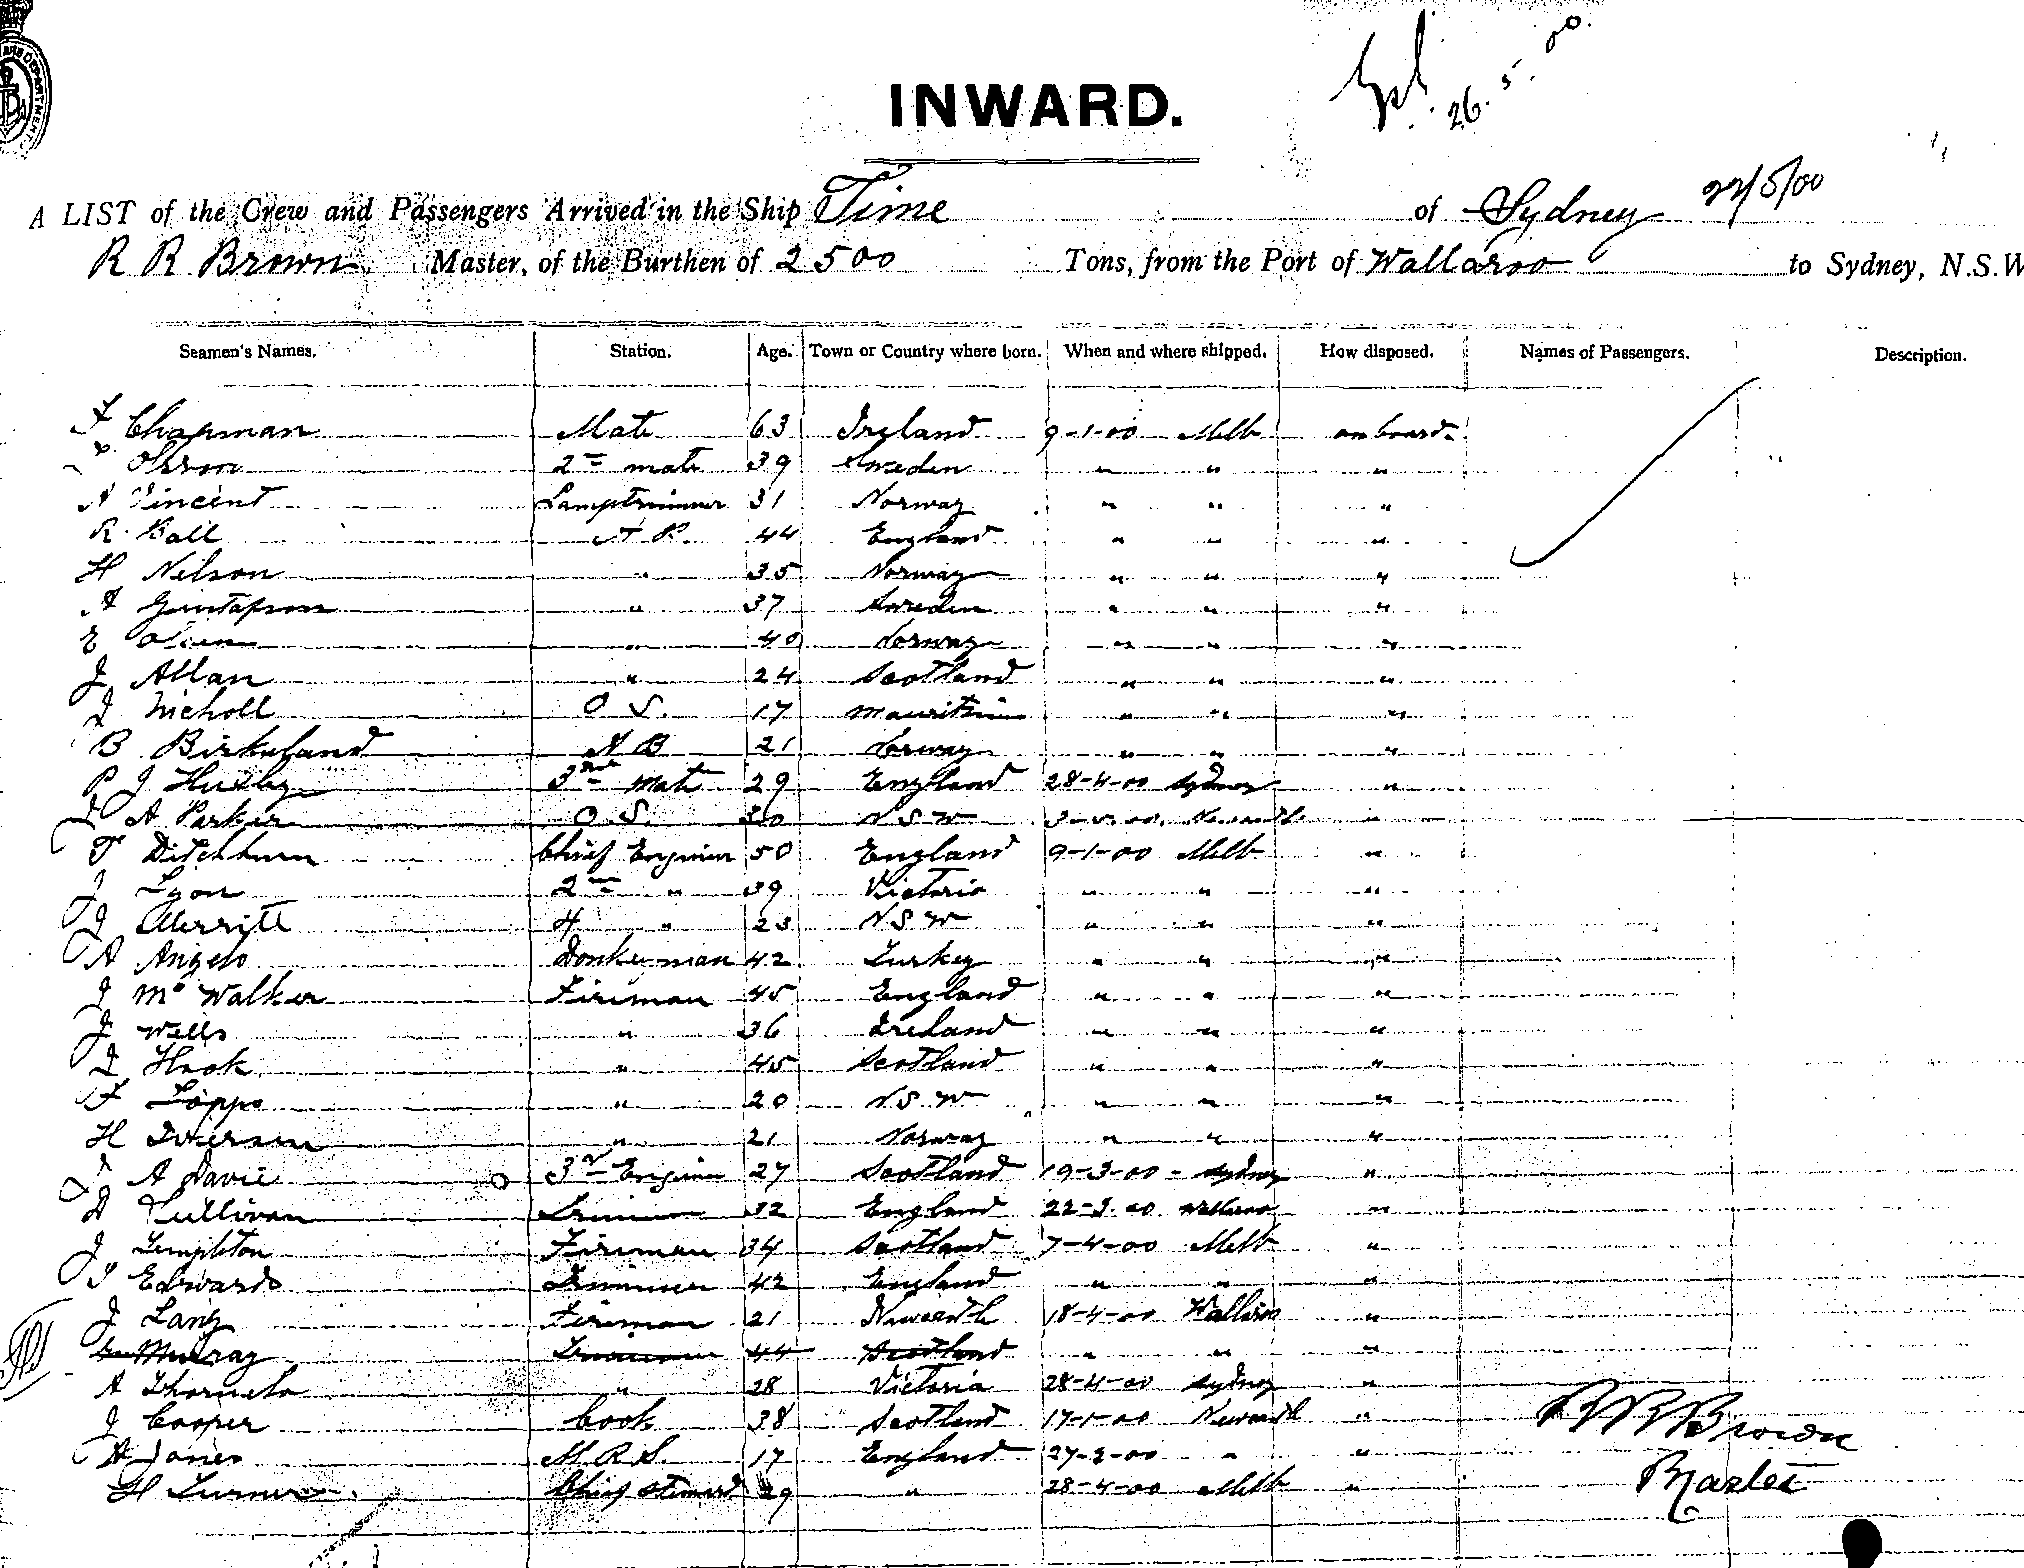 26.5.00.
INWARD.
A LIST of the Crew and Passengers Arrived in the Ship Time of Sydney 22/5/00
R R Brown Master, of the Burthen of 2500 Tons, from the Port of Wallaroo to Sydney, N.S.W
Seamen's Names. Station. Age. Town or Country where born. When and where shipped. How disposed. Names of Passengers. Description.
F Chapman Mate 63 Ireland 9-1-00 Melb on board
2nd mate 39 Sweden " " "
A Vincent Lamptrimmer 31 Norway " " "
R Ball A B. 44 England " " "
H Nelson " 35 Norway " " "
A Gustafson " 37 Sweden " " "
E Olsen " 40 Norway " " "
J Allan " 24 Scotland " " "
J Nicholl O S. 17 Mauritius " " "
B Birkeland A B 21 Norway " " "
P J 3rd Mate 29 England 28-4-00 Sydney "
A Parker O S. N S W Newcastle "
T Ditchburn Chief Engineer 50 England 9-1-00 Melb "
J Lyon 2nd " 39 Victoria " " "
J Merritt 4 " 23 N S W " " "
A Angelo Donkeyman 42 Turkey " " "
J Mc Walker Fireman 45 England " " "
J Wells " 36 Ireland " " "
J Hook " 45 Scotland " " "
F " 20 N S W " " "
H Iversen " 21 Norway " " "
A Davie 3rd Engineer 27 Scotland 19-3-00 - Sydney "
Sullivan Trimmer 32 England 22-3-00 Wallaroo "
J Templeton Fireman 34 Scotland 7-4-00 Melb "
J Edwards Trimmer 42 England " " "
J Lang Fireman 21 Newcastle 18-4-00 Wallaroo "
Murray Trimmer 44 Scotland " " "
A " 28 Victoria 28-4-00 Sydney "
J Cooper Cook 38 Scotland 17-1-00 Newcastle "
A Jones M R S. 17 England 27-2-00 " "
H Turner Chief Steward 29 " 28-4-00 Melb "
R R Brown
Master